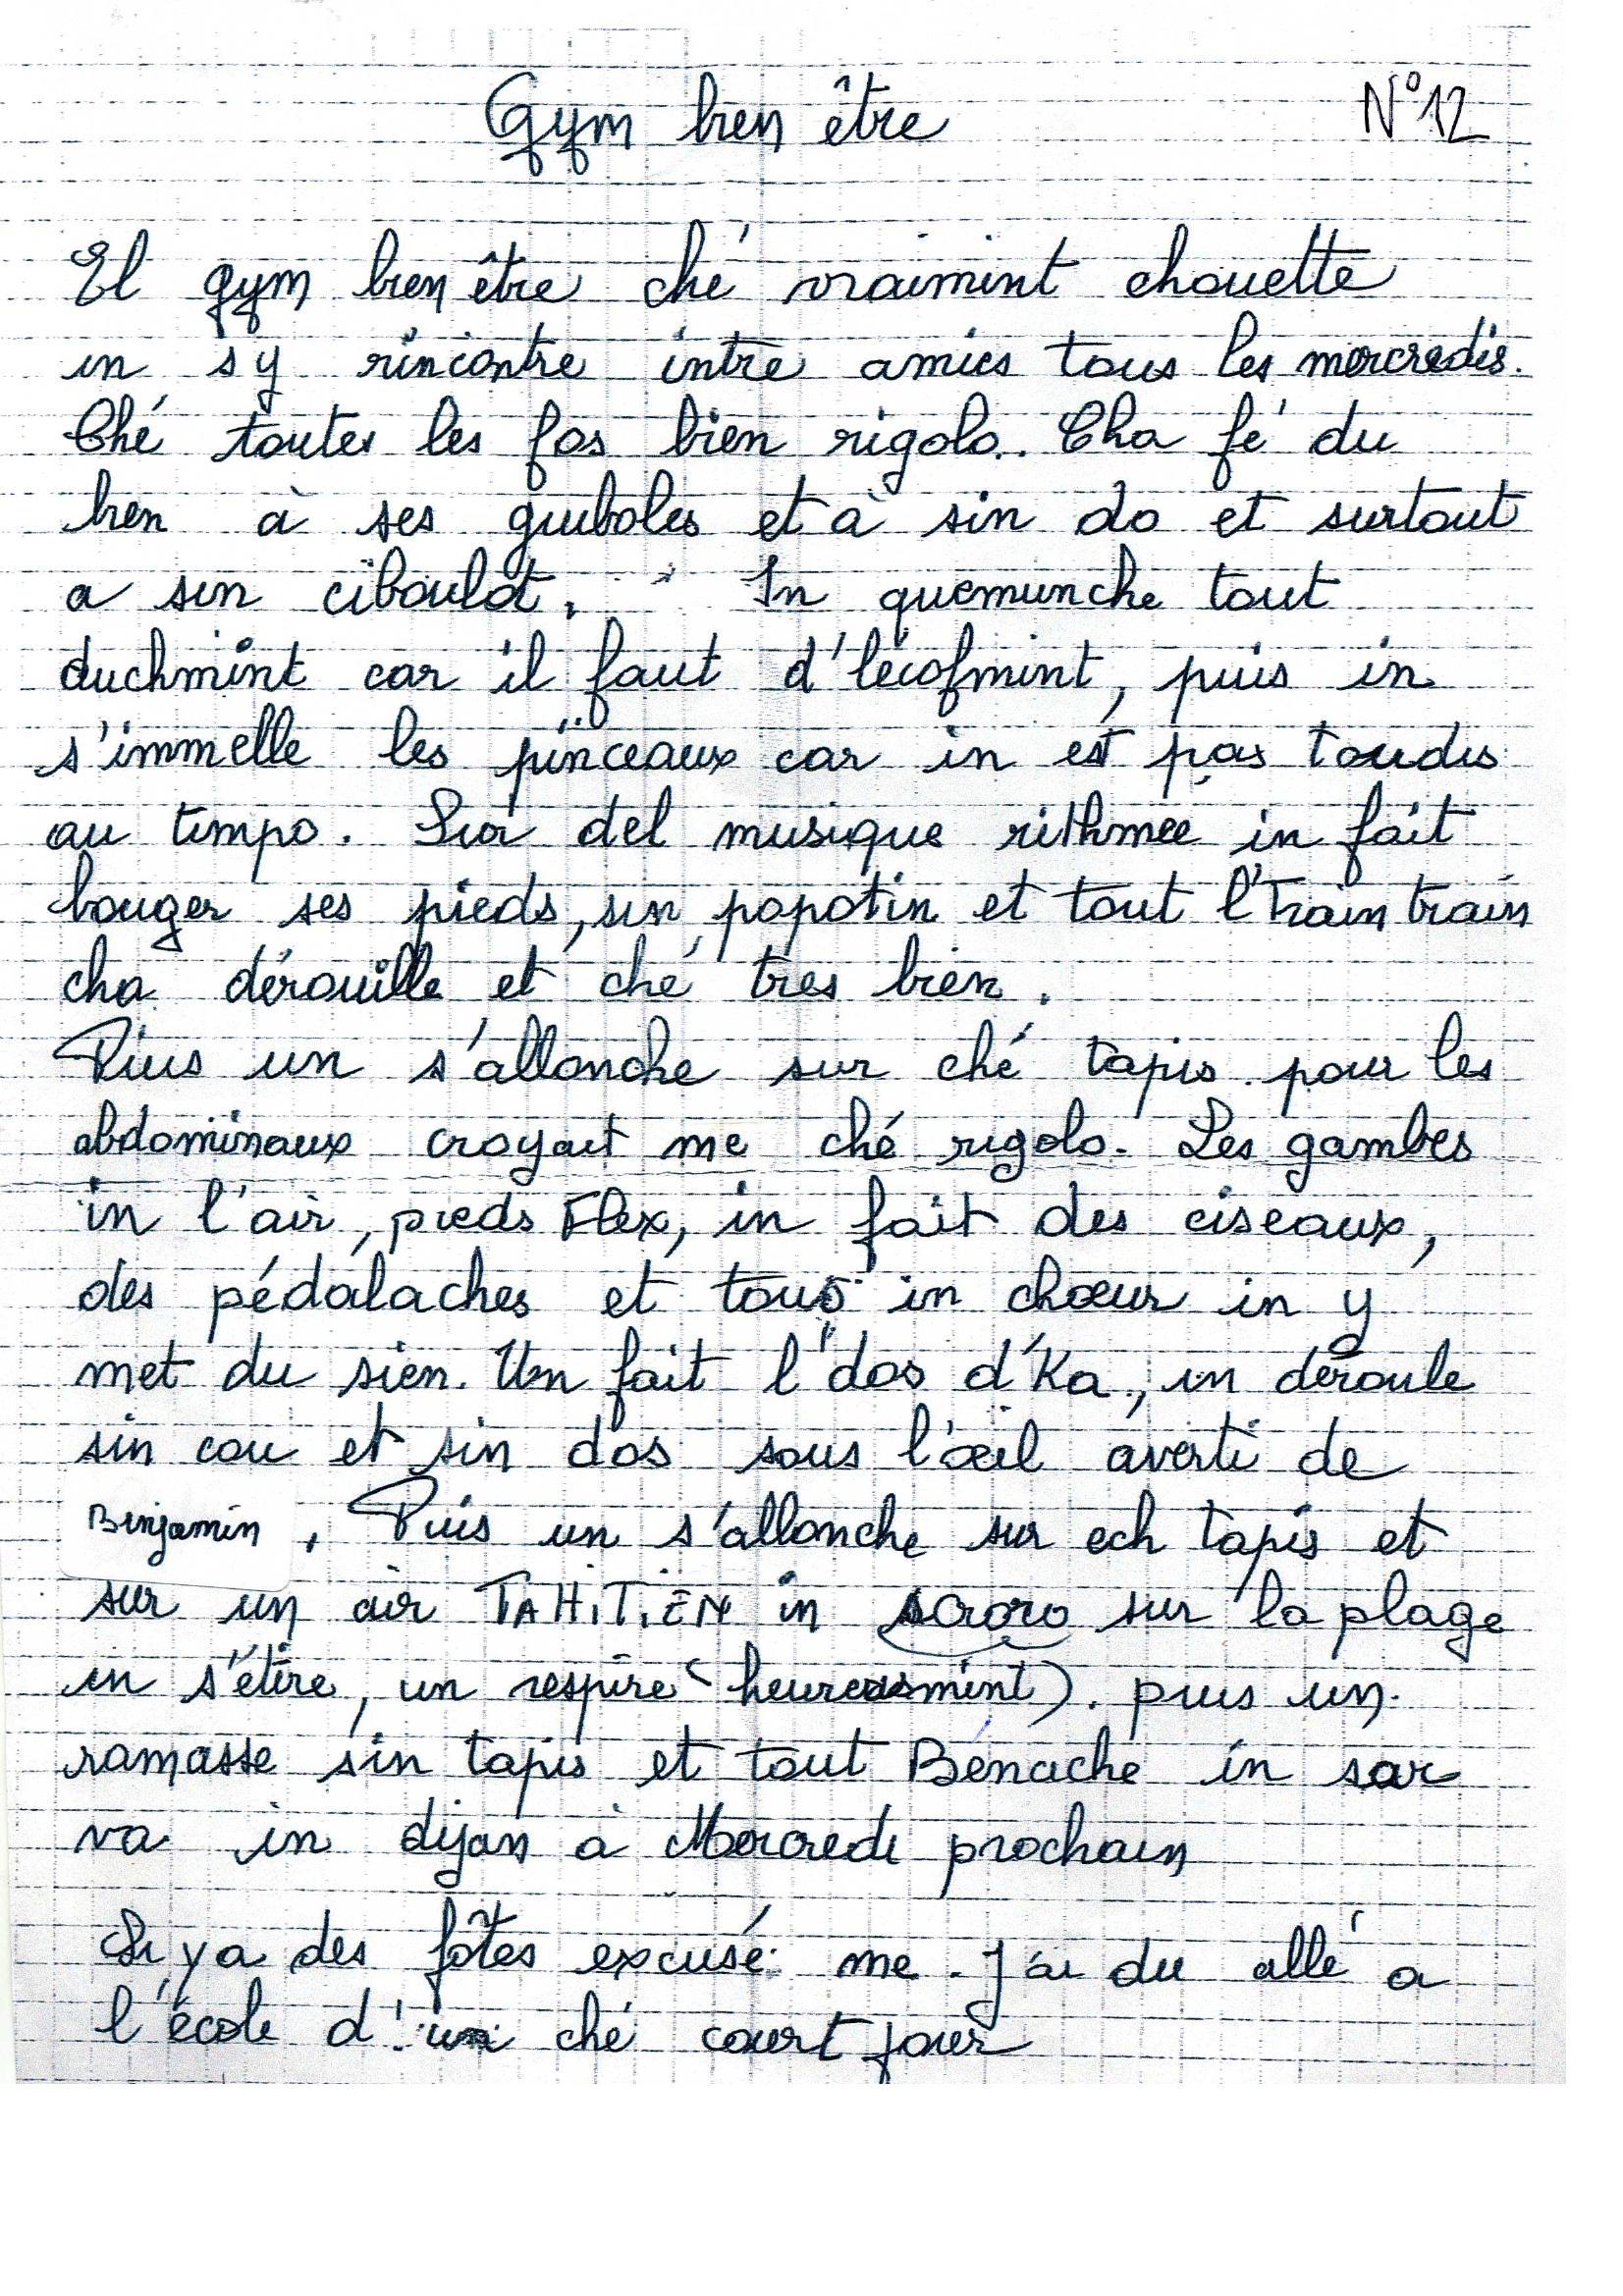 Gym bien être
N°12
El gym bien être ché vraimint chouette
in s'y rincontre intre amies tous les mercredis.
Ché toutes les fos bien rigolo.. Cha fé du
bien à ses guiboles et à sin do et surtout
a sin ciboulot. In quemunche tout
duchmint car il faut d'lécofmint, puis in
s'immelle les pinceaux car in est pas toudis
au tempo. Sur del musique rithmée in fait
bouger ses pieds, sin popotin et tout l'train train
cha dérouille et ché tres bien.
Pius un s'allonche sur ché tapis pour les
abdominaux croyait me ché rigolo. Les gambes
in l'air, pieds Flex, in fait des ciseaux,
des pédalaches et tous in chœur in y
met du sien. Un fait l'dos d'Ka, in déroule
sin cou et sin dos sous l'œil averti de
Binjamin. Puis un s'allonche sur ech tapis et
sur un air TAHITIEN in sororo sur la plage
in s'étire, un respire (heureusmint). puis un
ramasse sin tapis et tout Bénache in sar
va in dijan à Mercredi prochain
Si ya des fôtes excusé me. J'ai du allé a
l'école d'un ché court jour